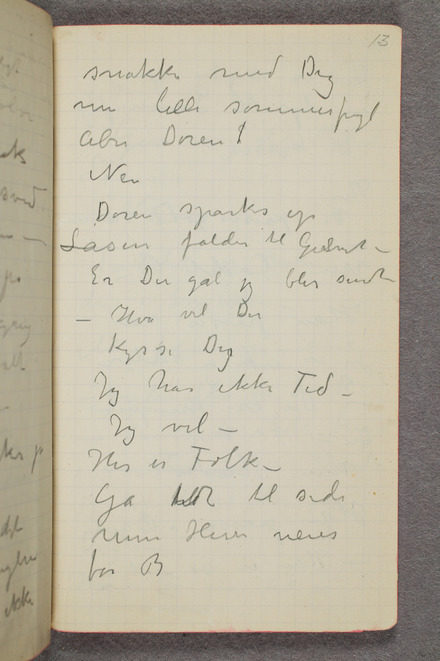 13
snakke med Dig
min lille sommerfugl
Abn Døren!
Nei
Døren sparkes op
Låsen falder til
Er Du gal jeg blir
– Hva vil Du
Kysse Dig
Jeg har ikke Tid –
Jeg vil –
Her er Folk –
Ga til side
min Herre
for B